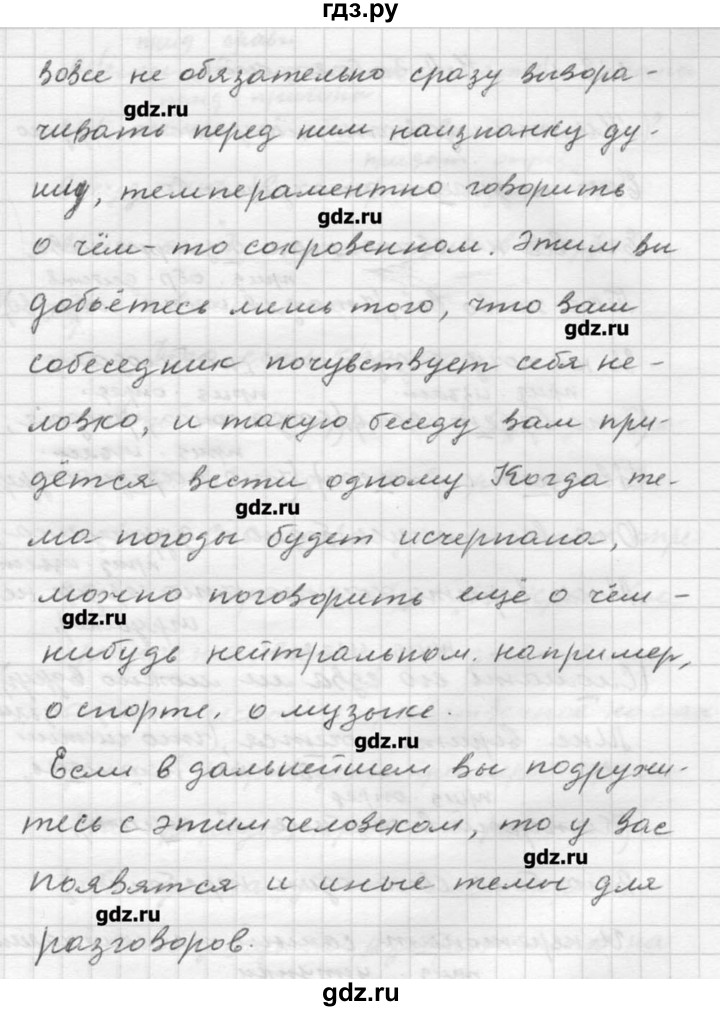 гдз.ру
вовсе не обязательно сразу вывора-
gdz.ru
чивать перед ним наизнанку ду-
шу, темпераментно говорить
gdz.ru
о чём-то сокровенном. Этим вы
добьётесь лишь того, что ваш
gdz.ru
собеседник почувствует себя не-
ловко, и такую беседу вам при-
дётся вести одному Когда те-
gdz.ru
ма погоды будет исчерпана,
можно поговорить ещё о чём-
gdz.ru
нибудь нейтральном. например,
о спорте, о музыке.
gdz.ru
Если в дальнейшем вы подружи-
тесь с этим человеком, то у вас
gdz.ru
появятся и иные темы для
gdz.ru
разговоров.
gdz.ru